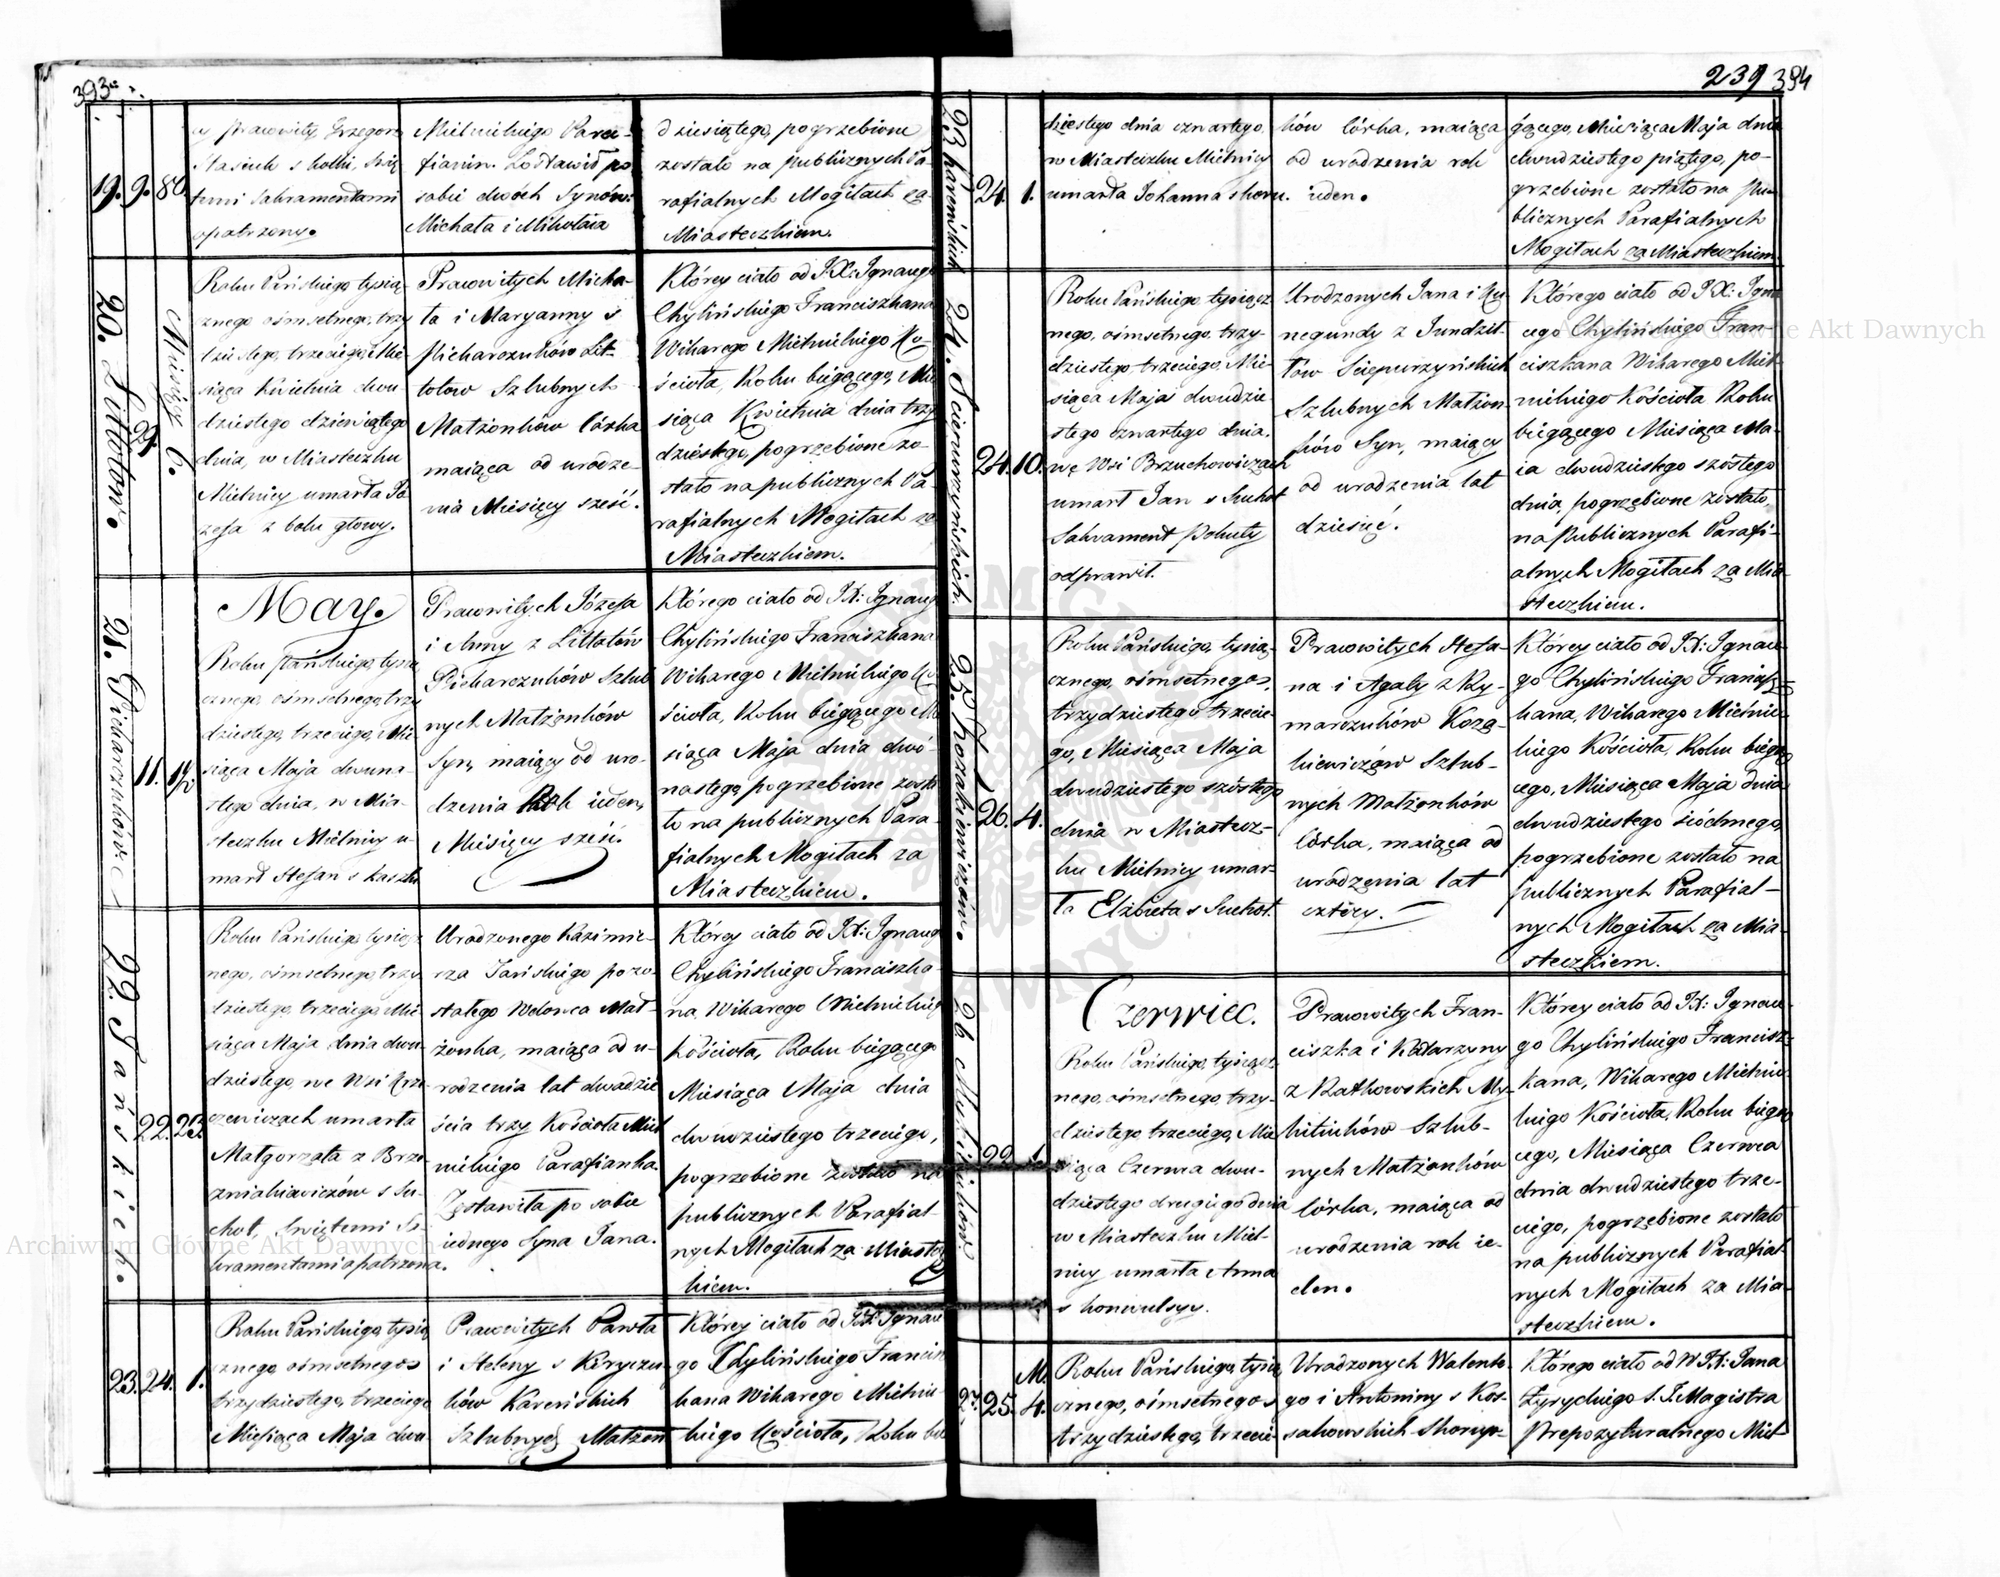 393
19. 9. 80.
y prawowity Grzegorz
Stasiuk s kolki, Swię
temi Sakramentami
opatrzony.
Mielnickiego Para-
fianin. Zostawił po
sobie dwóch Synów:
Michała i Mikołaia
dziesiątego, pogrzebione
zostało na publicznych Pa-
rafialnych Mogiłach za
Miasteczkiem.
20. Littotow.
29.
Miesięcy 6.
Roku Pańskiego, tysią-
cznego ośmsetnego, trzy
dziestego, trzeciego, Mie
siąca Kwietnia dwu
dziestego dziewiątego
dnia, w Miasteczku
Mielnicy umarła Jó
zefa z bolu głowy.
Prawowitych Micha-
ła i Maryanny s
Picharczuków Lit-
totow Szlubnych
Małżonków córka
maiąca od urodze-
nia Miesięcy sześć.
Którey ciało od JX: Ignacego
Chylińskiego Franciszkana
Wikarego Mielnickiego Ko-
ścioła, Roku biegącego, Mie
siąca Kwietnia dnia trzy
dziestego, pogrzebione zo-
stało na publicznych Pa-
rafialnych Mogiłach za
Miasteczkiem.
21. Picharczuków
11. 1½
May.
Roku Pańskiego, tysią
cznego, ośmsetnego, trzy
dziestego, trzeciego, Mie
siąca Maja dwuna-
stego dnia, w Mia-
steczku Mielnicy u-
marł Stefan s kaszlu
Prawowitych Józefa
i Anny z Littotów
Picharczuków Szlub
nych Małżonków
Syn, maiący od uro-
dzenia Rok ieden,
Miesięcy sześć.
Którego ciało od JX: Ignacego
Chylińskiego Franciszkana
Wikarego Mielnickiego Ko
ścioła, Roku biegącego Mie
siąca Maja dnia dwó-
nastego, pogrzebione zosta
ło na publicznych Para-
fialnych Mogiłach za
Miasteczkiem.
22. Jańskich.
22. 23.
Roku Pańskiego, tysiącz
nego, ośmsetnego, trzy
dziestego, trzeciego, Mie
siąca Maja dnia dwu
dziestego, we Wsi Krze
czewiczach umarła
Małgorzata z Brze-
zniakiewiczów s Su-
chot, Swiętemi Sa-
kramentami opatrzona.
Urodzonego Kazimie-
rza Jańskiego pozo-
stałego Wdowca Mał-
żonka, maiąca od u-
rodzenia lat dwadzie
ścia trzy Kościoła Miel
nickiego Parafianka.
Zostawiła po sobie
iednego Syna Jana.
Którey ciało od JX: Ignacego
Chylińskiego Franciszka-
na, Wikarego Mielnickiego
Kościoła, Roku biegącego
Miesiąca Maja dnia
dwudziestego trzeciego,
pogrzebione zostało na
publicznych Parafial
nych Mogiłach za Miastecz
kiem.
23. 24. 1.
Roku Pańskiego, tysią
cznego, ośmsetnego
trzydziestego, trzeciego
Miesiąca Maja dwu-
Prawowitych Pawła
i Heleny s Kiryczu-
ków Kareńskich
Szlubnych Małżon
Którey ciało od JX: Ignace
go Chylińskiego Francisz
kana Wikarego Mielnic
kiego Kościoła, Roku bie
239 394
23 Kareńskich
24. 1.
dziestego dnia czwartego,
w Miasteczku Mielnicy
umarła Johanna s koru.
ków córka, maiąca
od urodzenia rok
ieden.
gącego, Miesiąca Maja dnia
dwudziestego piątego, po-
grzebione zostało na pu-
blicznych Parafialnych
Mogiłach za Miasteczkiem.
24. Sciepurzyńskich.
24. 10.
Roku Pańskiego, tysiącz
nego, ośmsetnego, trzy-
dziestego, trzeciego, Mie-
siąca Maja dwudzie-
stego czwartego dnia,
we Wsi Brzuchowiczach
umarł Jan s Suchot
Sakrament Pokuty
odprawił.
Urodzonych Jana i Ku
negundy z Jundził-
łów Sciepurzyńskich
Szlubnych Małżon-
ków Syn, maiący
od urodzenia lat
dziesięć.
Którego ciało od JX: Igna
cego Chylińskiego Fran-
ciszkana Wikarego Miel-
nickiego Kościoła Roku
biegącego Miesiąca Ma-
ia dwudziestego szóstego
dnia, pogrzebione zostało,
na publicznych Parafi-
alnych Mogiłach za Mia-
steczkiem.
25. Kozakiewiczów.
26. 4.
Roku Pańskiego, tysią-
cznego, ośmsetnego,
trzydziestego, trzecie-
go, Miesiąca Maja
dwudziestego szóstego
dnia w Miastecz-
ku Mielnicy umar-
ła Elżbieta s Suchot.
Prawowitych Stefa-
na i Agaty z Ry-
marczuków Koza-
kiewiczów Szlub-
nych Małżonków
córka, maiąca od
urodzenia lat
cztéry.
Którey ciało od JX: Ignace-
go Chylińskiego Francisz-
kana, Wikarego Mielnic-
kiego Kościoła, Roku biegą
cego, Miesiąca Maja dnia
dwudziestego siódmego,
pogrzebione zostało na
publicznych Parafial-
nych Mogiłach za Mia-
steczkiem.
22. 1.
Czerwiec.
Roku Pańskiego, tysiącz-
nego, ośmsetnego, trzy-
dziestego, trzeciego, Mie
siąca Czerwca dwu-
dziestego drugiego dnia
w Miasteczku Miel-
nicy umarła Anna
s konwulsyi.
Prawowitych Fran-
ciszka i Katarzyny
z Ratkowskich My-
kitiuków Szlub-
nych Małżonków
córka, maiąca od
urodzenia rok ie-
den.
Którey ciało od JX: Ignace-
go Chylińskiego Francisz-
kana, Wikarego Mielnic-
kiego Kościoła, Roku biegą
cego, Miesiąca Czerwca
dnia dwudziestego trze-
ciego, pogrzebione zostało
na publicznych Parafial-
nych Mogiłach za Mia-
steczkiem.
27. 25. M. 4.
Roku Pańskiego, tysią
cznego, ośmsetnego,
trzydziestego, trzecie-
Urodzonych Walente-
go i Antoniny s Kos-
sakowskich
Którego ciało od W JX: Jana
Łyryckiego S. T. Magistra
Prepozyturalnego Miel
Archiwum Główne Akt Dawnych